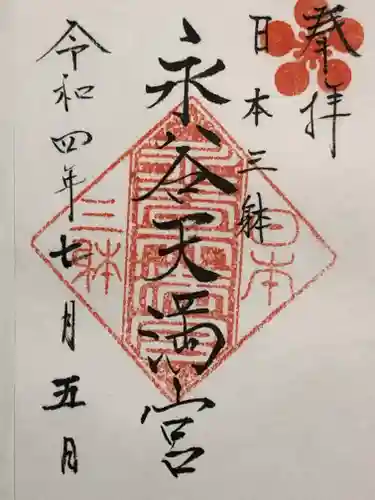 奉拝
日本三躰
永谷天満宮
令和四年七月五日
日本
三躰